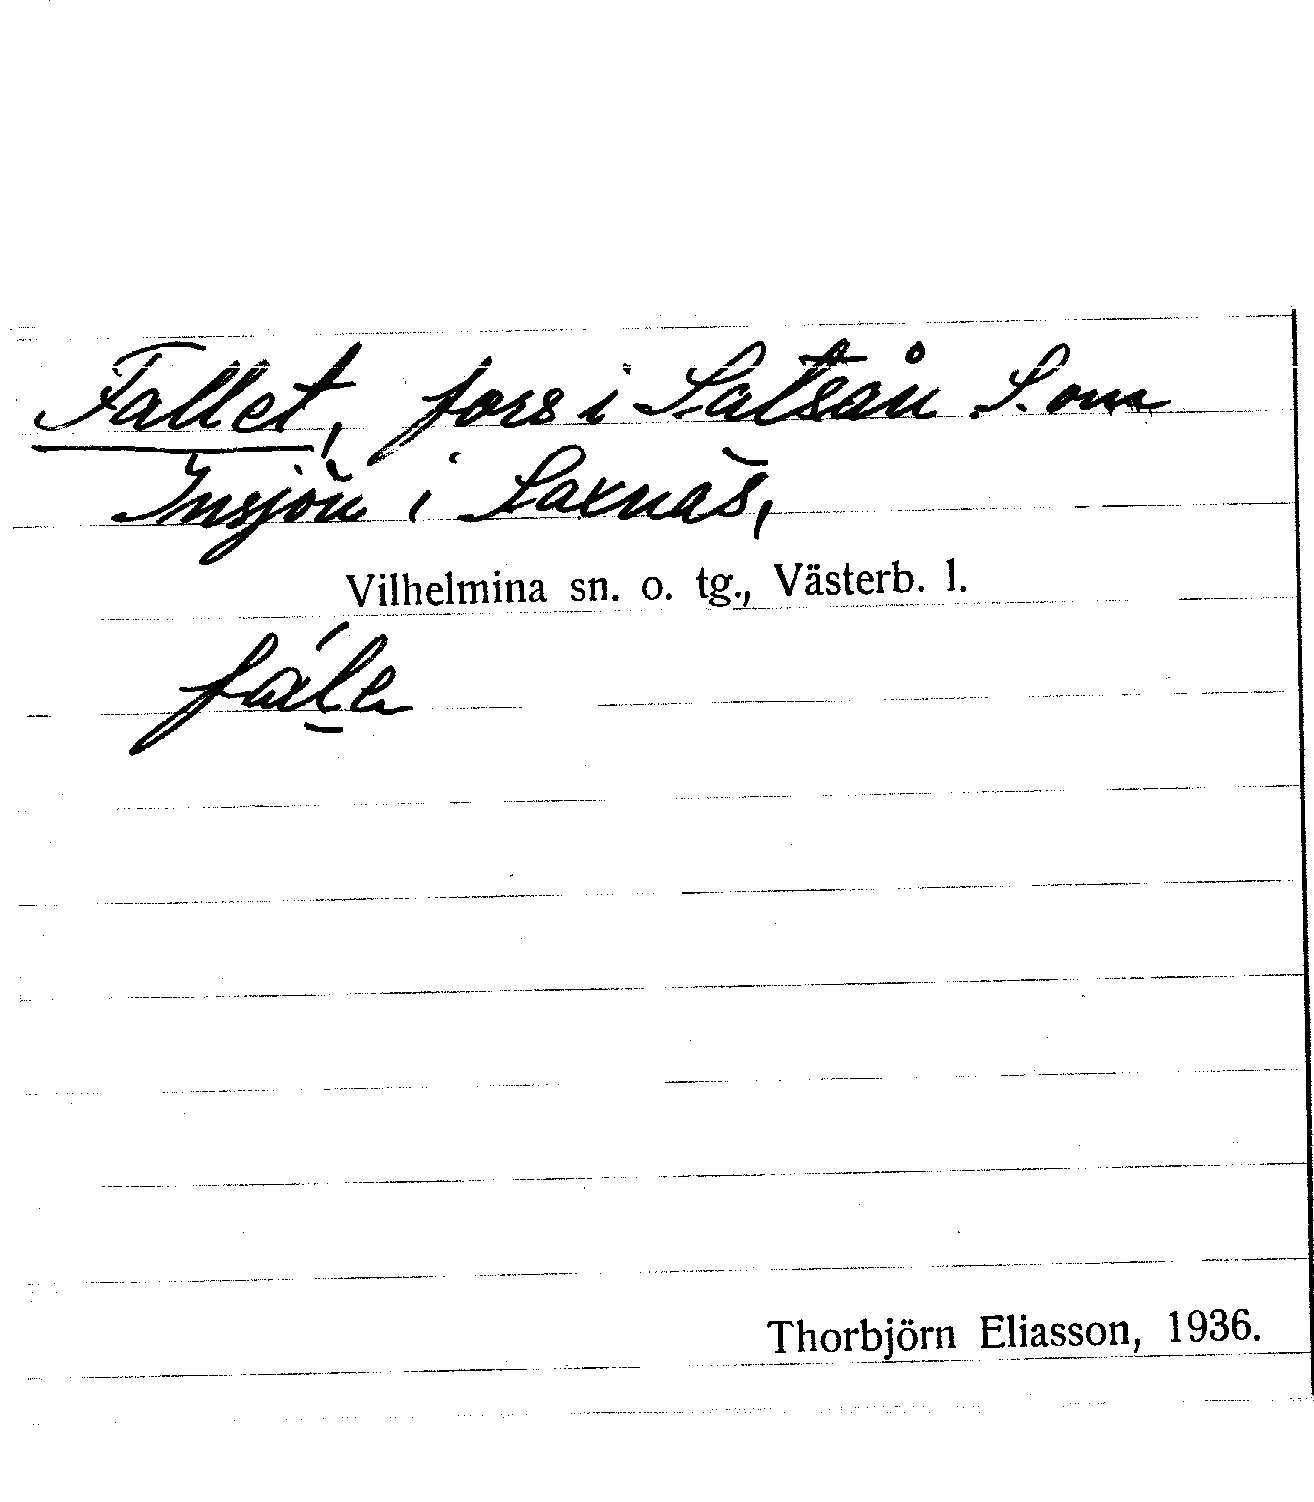 Fallet, fors i Satsån S. om
Insjön i Saxnäs,
Vilhelmina sn. o. tg., Västerb. l.
Thorbjörn Eliasson, 1936.